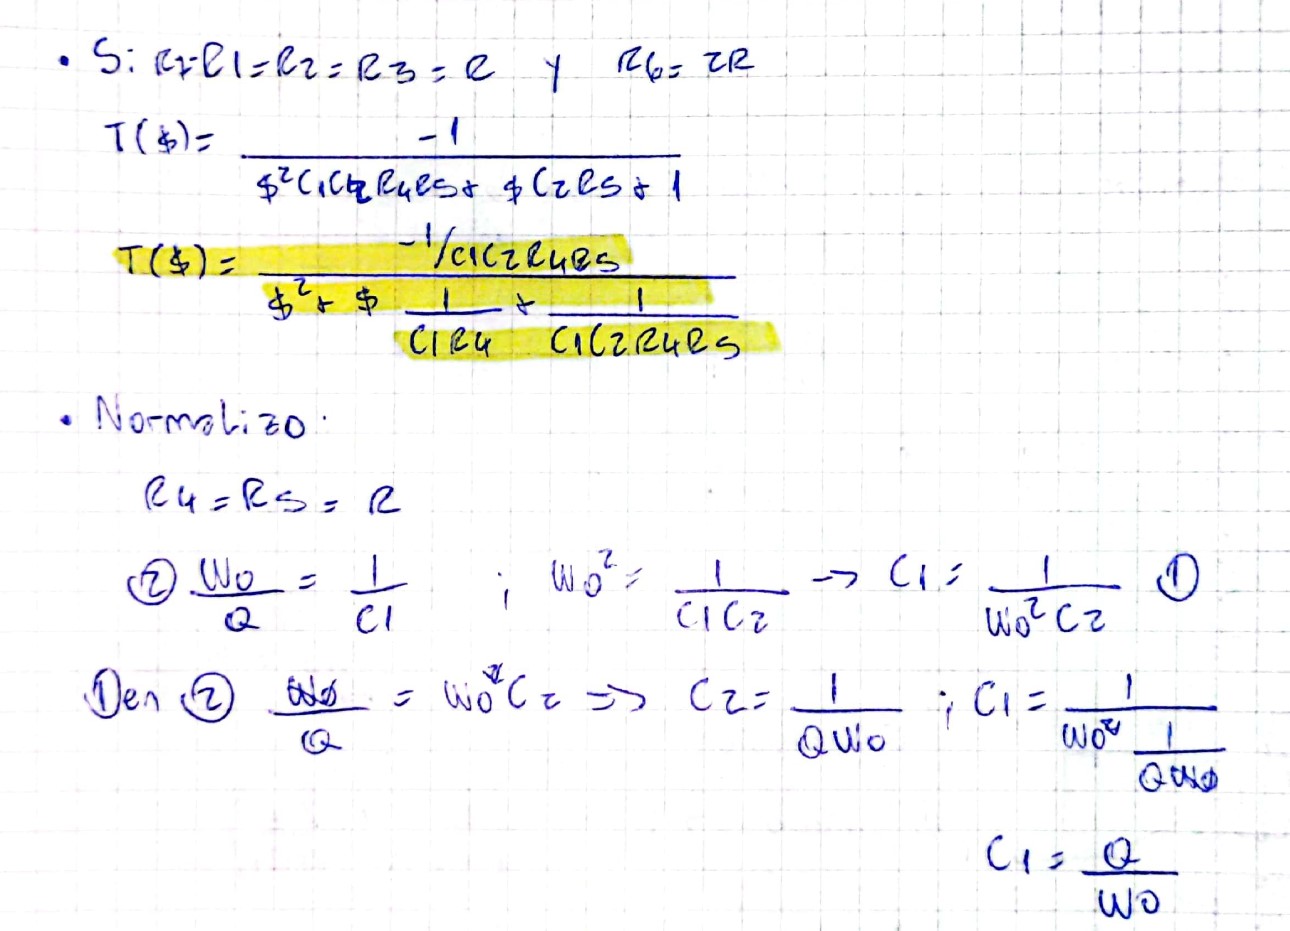 • Si R7=R1=R2=R3=R y R6=2R
T($)= -1 / ($²C1C2R4R5+ $C2R5+1)
T($)= (-1/C1C2R4R5) / ($²+ $ 1/(C1R4) + 1/(C1C2R4R5))
• Normalizo:
R4=R5=R
② Wo/Q = 1/C1 ; Wo²= 1/(C1C2) -> C1= 1/(Wo²C2) ①
① en ② Wo/Q = Wo²C2 => C2= 1/(QWo) ; C1= 1/(Wo² 1/(QWo))
C1= Q/Wo